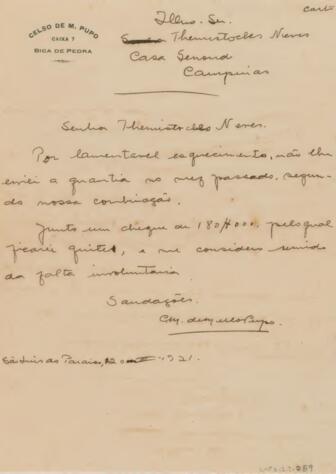 CELSO DE M. PUPO
CAIXA 7
BICA DE PEDRA
Illmo. Sr.
Themistocles Neves
Casa Genoud
Campinas
Senhor Themistocles Neves.
Por lamentavel esquecimento, não lhe
enviei a quantia no mez passado, segun-
do nossa combinação.
Junto um cheque de 180$000, pelo qual
ficarei quite, e me considero remido
da falta involuntaria.
Saudações.
C. M. de Mello Pupo.
São Luis do Paraiso,